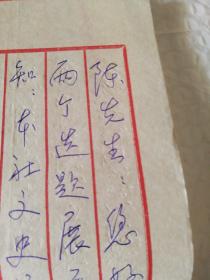 陈先生：您好
两个选题展
知：本社文史